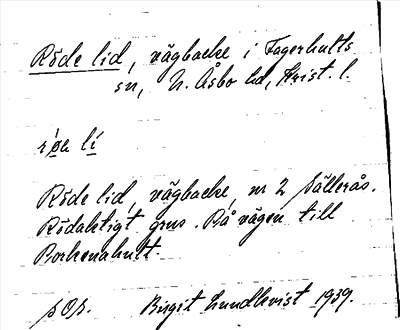 Röde lid, vägbacke i Fagerhults
sn, N. Åsbo hd, Krist. l.
Röde lid, vägbacke, nr 2 Källerås.
Rödaktigt grus. På vägen till
Borhenahult.
SOS. Birgit Lundkvist 1939.